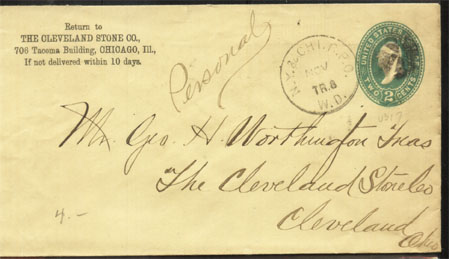 Return to
THE CLEVELAND STONE CO.,
706 Tacoma Building, CHICAGO, Ill.,
If not delivered within 10 days.
Personal
N.Y. & CHI. R.P.O.
NOV
TR.8
W.D.
UNITED STATES
2
TWO CENTS
U317
Mr. Geo. H. Worthington Treas
The Cleveland Stone Co
Cleveland
Ohio
4.-